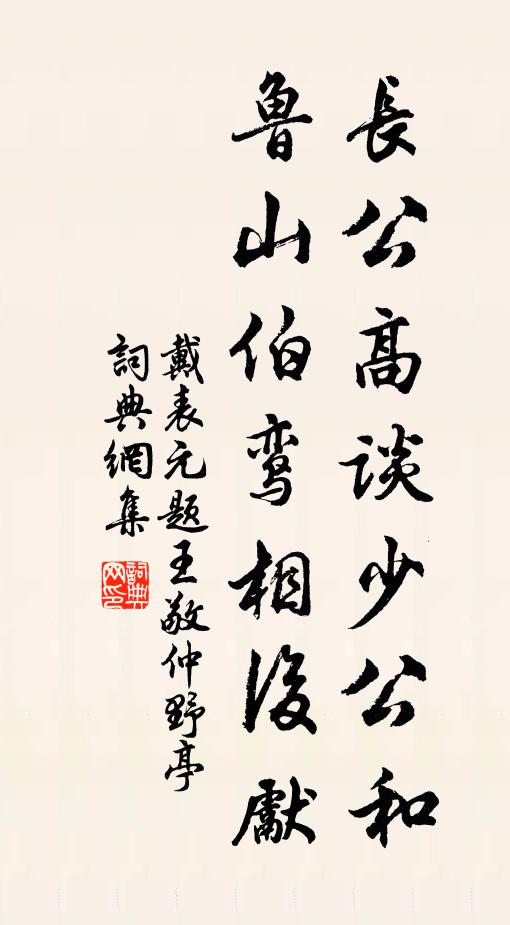 長公高談少公和
魯山伯鸾相後獻
戴表元題王敬仲野亭
詞典網集
詞典
网印